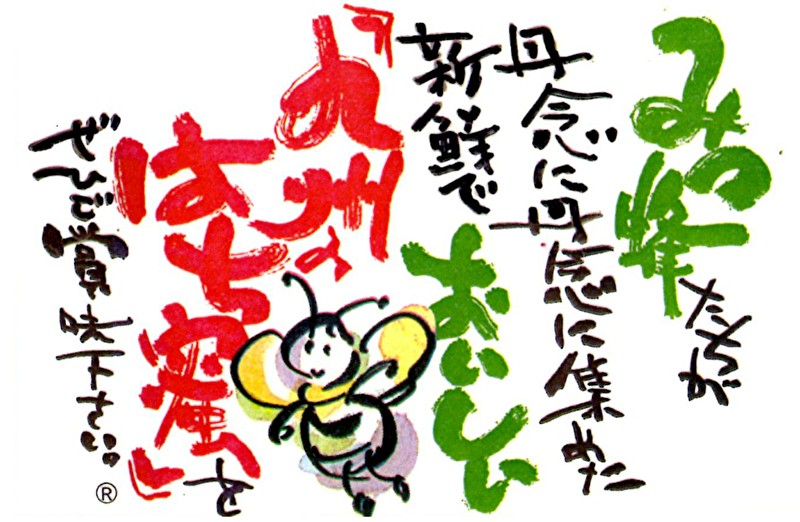 みつ蜂たちが
丹念に丹念に集めた
新鮮でおいしい
『九州の
はち蜜』を
ぜひご賞味下さい。
®